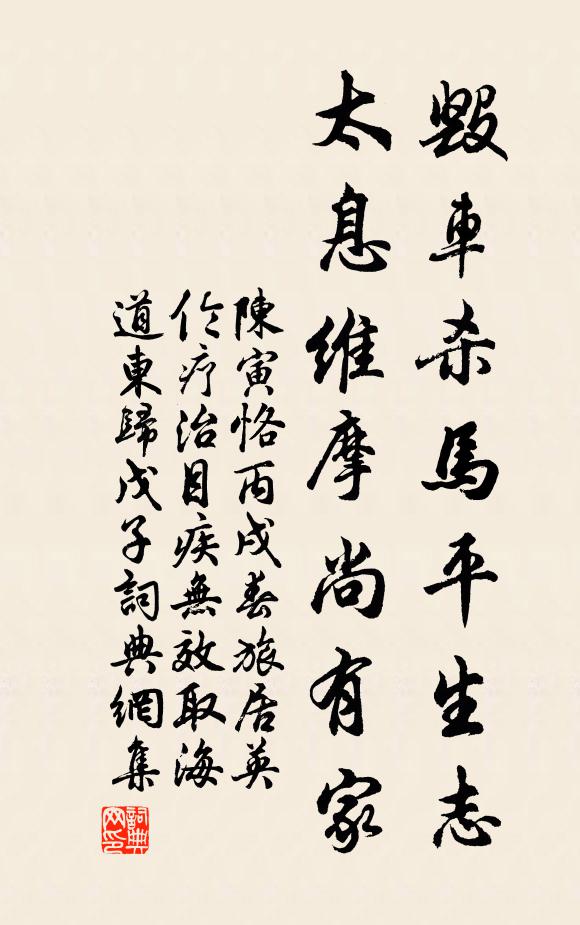 毀車杀馬平生志
太息維摩尚有家
陳寅恪丙戌春旅居英
伦疗治目疾無效取海
道東歸戊子詞典網集
詞典网印